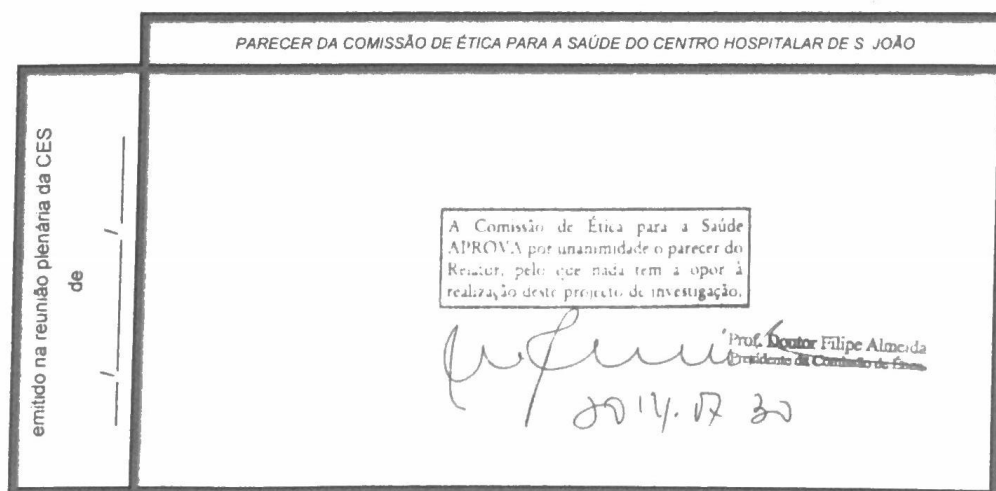 PARECER DA COMISSÃO DE ÉTICA PARA A SAÚDE DO CENTRO HOSPITALAR DE S JOÃO
emitido na reunião plenária da CES
de
____/____/____
A Comissão de Ética para a Saúde
APROVA por unanimidade o parecer do
Relator, pelo que nada tem a opor à
realização deste projecto de investigação.
Prof. Doutor Filipe Almeida
Presidente da Comissão de Ética
2014.07 30